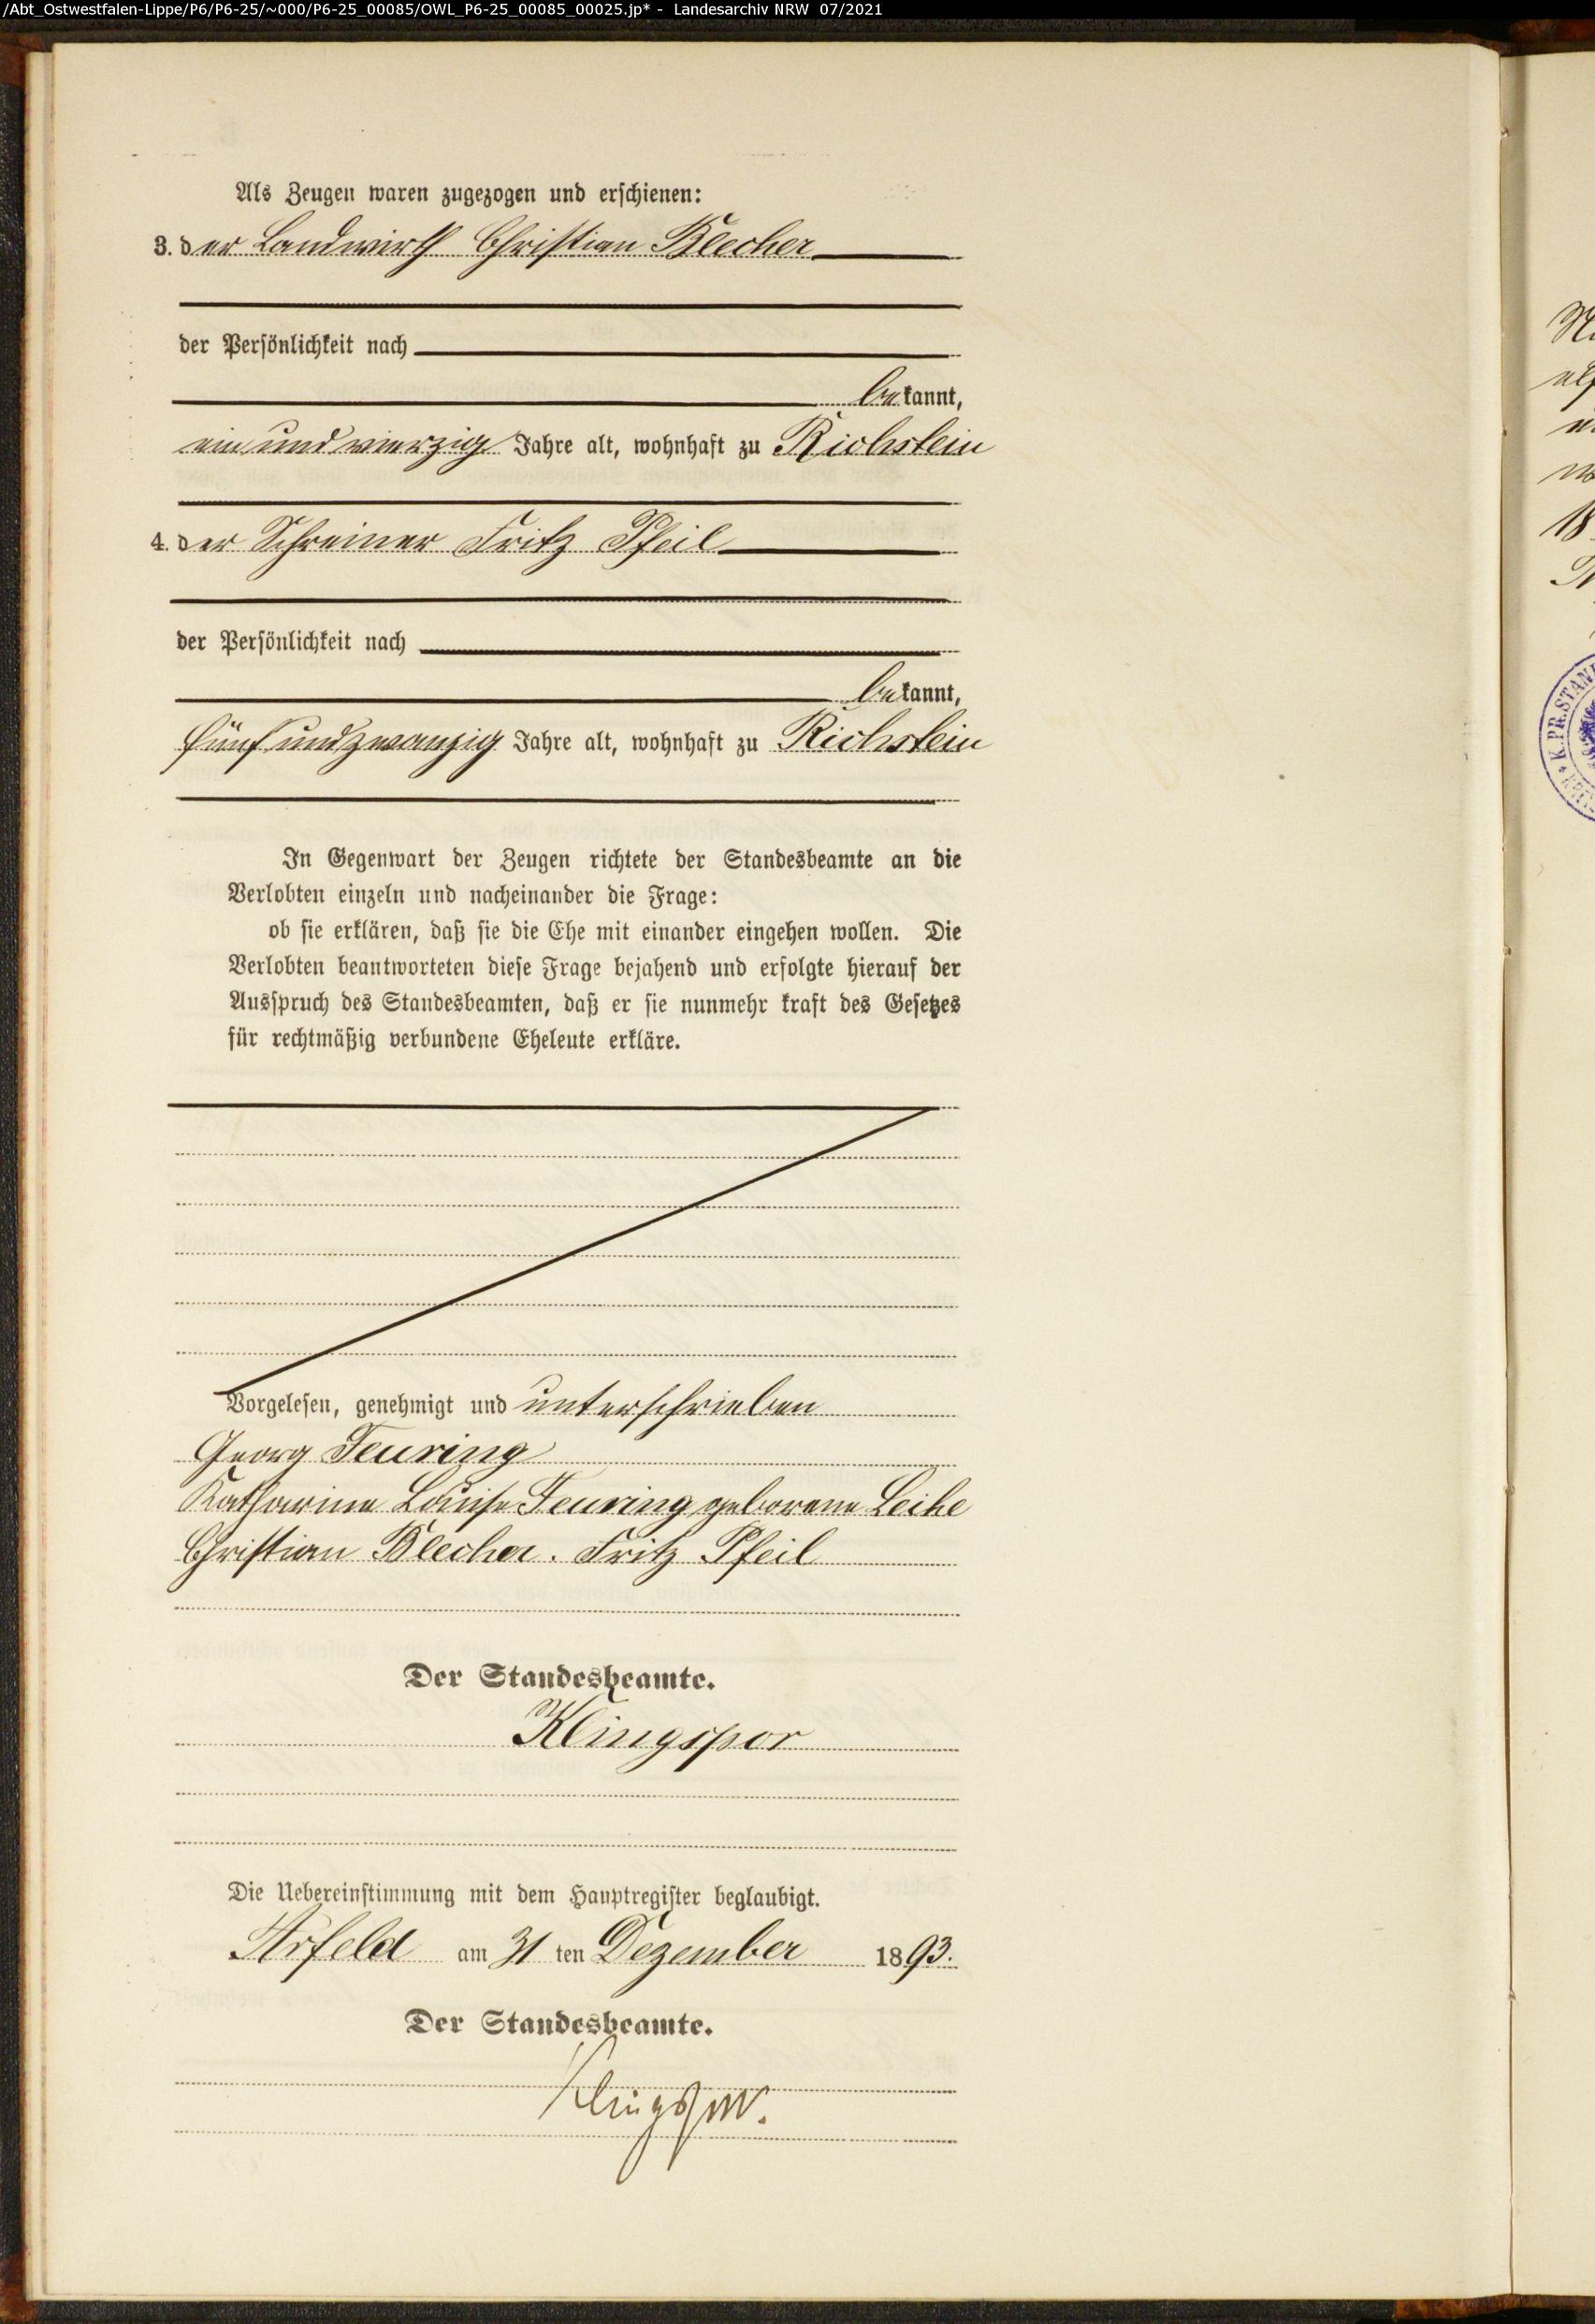 /Abt_Ostwestfalen-Lippe/P6/P6-25/~000/P6-25_00085/OWL_P6-25_00085_00025.jp* - Landesarchiv NRW 07/2021
Als Zeugen waren zugezogen und erschienen:
3. der Landwirth Christian Blecher
der Persönlichkeit nach
bekannt,
ein und vierzig Jahre alt, wohnhaft zu Richstein
4. der Schreiner Fritz Pfeil
der Persönlichkeit nach
bekannt,
fünf und zwanzig Jahre alt, wohnhaft zu Richstein
In Gegenwart der Zeugen richtete der Standesbeamte an die
Verlobten einzeln und nacheinander die Frage:
ob sie erklären, daß sie die Ehe mit einander eingehen wollen. Die
Verlobten beantworteten diese Frage bejahend und erfolgte hierauf der
Ausspruch des Standesbeamten, daß er sie nunmehr kraft des Gesetzes
für rechtmäßig verbundene Eheleute erkläre.
Vorgelesen, genehmigt und unterschrieben
Georg Feuring
Katharine Louise Feuring geborene Leihe
Christian Blecher. Fritz Pfeil
Der Standesbeamte.
Klingspor
Die Uebereinstimmung mit dem Hauptregister beglaubigt.
Arfeld am 31 ten Dezember 1893.
Der Standesbeamte.
Klingspor.